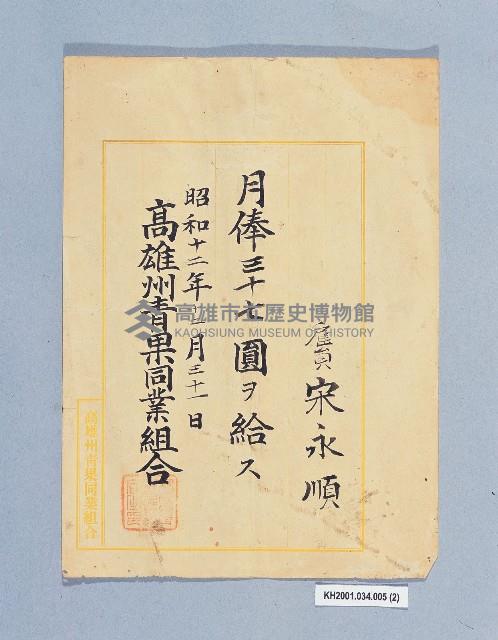 雇員 宋永順
月俸三十七圓ヲ給ス
昭和十二年 月三十一日
高雄州青果同業組合
高雄州青果同業組合
高雄市立歷史博物館
KAOHSIUNG MUSEUM OF HISTORY
KH2001.034.005 (2)